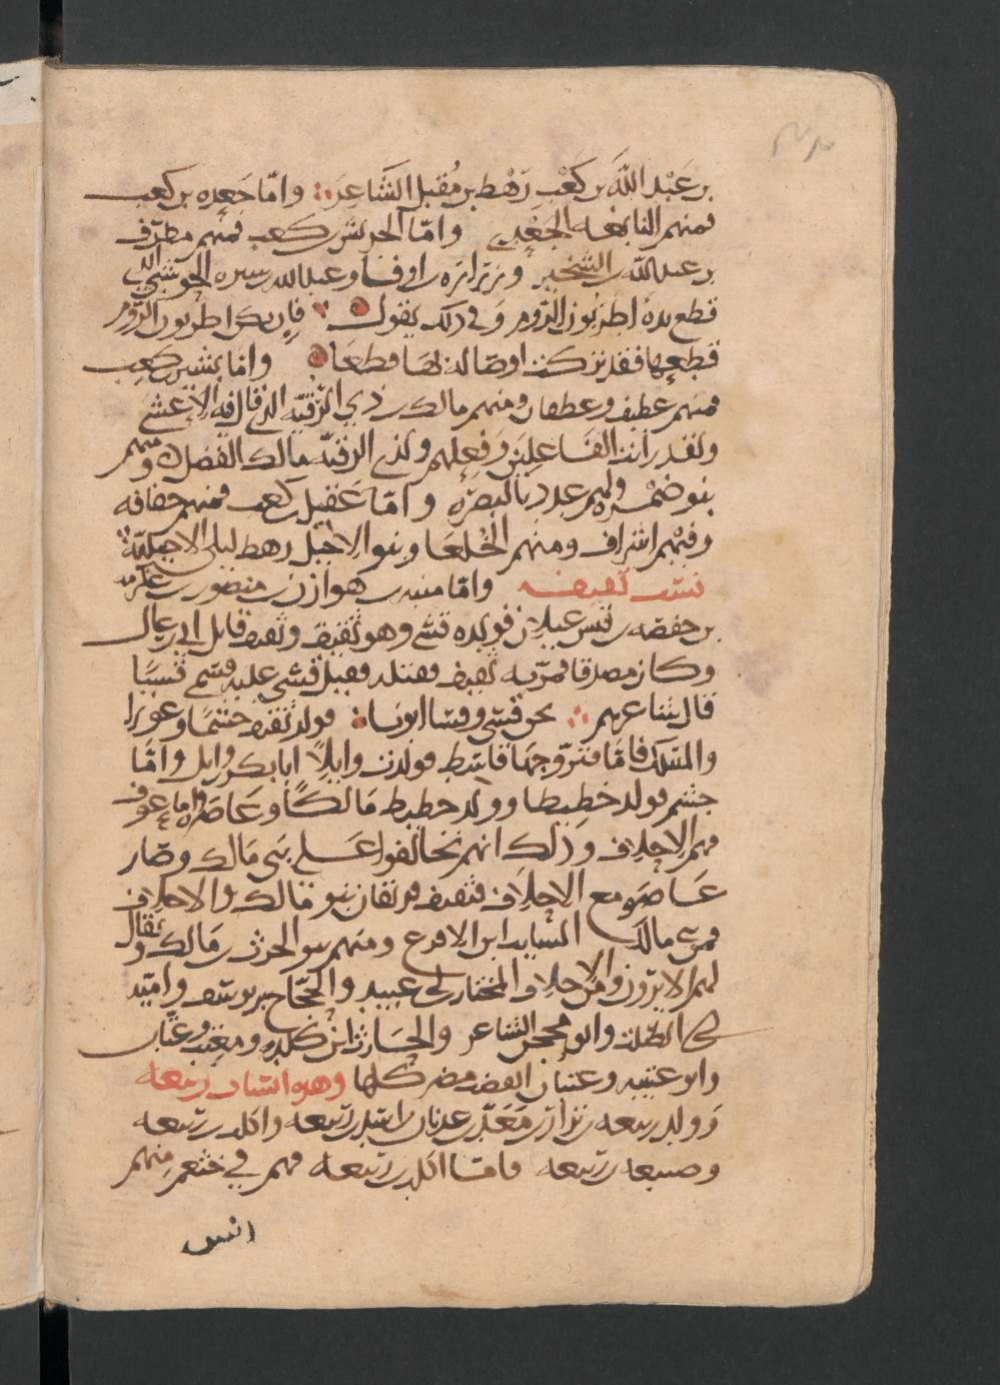 بن عبد الله بن كعب رهط بن مقبل الشاعر وامّا جعده بن كعب
فمنهم النابغه الجعدي وامّا الحريش بن كعب فمنهم مطرّف
بن عبد الله بن الشخير وزراره بن اوفا وعبد الله بن سبره الحرشي الذي
قطع يده اطربون الروم وفي ذلك يقول فإن يكن اطربون الروم
قطعها فقد تركت اوصاله بها قطعا وامّا قشير بن كعب
فمنهم غطيف وغطفان ومنهم مالك بن ذي الرقيبه الذي قال فيه الاعشى
ولقد رأيت الفاعلين وفعلهم ولذي الرقيبه مالك الفضل ومنهم
بنو ضمره ولهم عدد بالبصره وامّا عقيل بن كعب فمنهم خفافه
وفيهم اشراف ومنهم الخلعا وبنو الاخيل رهط ليلى الاخيليّه
نسب ثقيف وامّا منبه بن هوازن بن منصور بن عكرمه
بن خصفه بن قيس عيلان فولده قسي وهو ثقيف وثقيف قاتل ابي رغال
وكان مصدقا فمرّ به ثقيف فقتله فقيل قسي عليه فسمي قسيّا
قال شاعرهم نحن قسي وقسا ابونا فولد ثقيف جشما وعوفا
والمسك فامّا فتزوجها قاسط فولدت وايلاً ابا بكر بن وايل وامّا
جشم فولد حطيطا وولد حطيط مالكا وغاضره وامّا عوف
فهم الاحلاف وذلك انهم تحالفوا على بني مالك وصار
غاضره مع الاحلاف فثقيف فرقتان بنو مالك والاحلاف
فمن بني مالك السايب ابن الاقرع ومنهم بنو الحرث بن مالك ويقال
لهم الاثرون ومن الاحلاف المختار بن ابي عبيد والحجّاج بن يوسف واميّه
بن ابي الصلت وابو محجن الشاعر والحارث ابن كلده ومعتب وعتّاب
وابو عتبه وعتبان انقضت مضر كلها وهذه انساب ربيعه
وولد ربيعه بن نزار بن معدّ بن عدنان اسد بن ربيعه واكلب بن ربيعه
وضبيعه بن ربيعه فامّا اكلب بن ربيعه فهم في خثعم منهم
انس